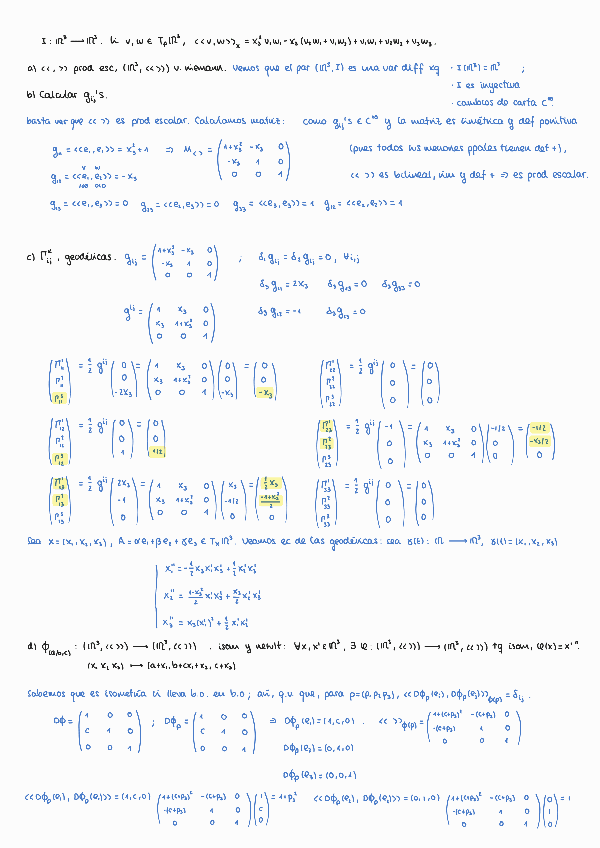 I: ℝ³ ⟶ ℝ³. Si v, w ∈ TₚℝP³, <<v,w>>ₓ = x₃² v₁w₁ - x₃(v₂w₁ + v₁w₂) + v₁w₁ + v₂w₂ + v₃w₃.
a) <<,>> prod esc, (ℝ³, <<>>) v. riemann. Vemos que el par (ℝ³, I) es una var diff xq · I(ℝ³) = ℝ³ ;
· I es inyectiva
b) Calcular gᵢⱼ's.
· cambios de carta C^∞
basta ver que <<>> es prod escalar. Calculamos matriz: como gᵢⱼ's ∈ C^∞ y la matriz es simétrica y def positiva
g₁₁ = <<e₁,e₁>> = x₃²+1 ⇒ M<<>> = (1+x₃² -x₃ 0 / -x₃ 1 0 / 0 0 1) (pues todos sus menores ppales tienen det +),
g₁₂ = <<e₁,e₂>> = -x₃ <<>> es bilineal, sim y def + ⇒ es prod escalar.
g₁₃ = <<e₁,e₃>> = 0 g₂₃ = <<e₂,e₃>> = 0 g₃₃ = <<e₃,e₃>> = 1 g₂₂ = <<e₂,e₂>> = 1
c) Γᵢⱼᵏ, geodésicas. gᵢⱼ = (1+x₃² -x₃ 0 / -x₃ 1 0 / 0 0 1) ; δ₁gᵢⱼ = δ₂gᵢⱼ = 0, ∀i,j
δ₃g₁₁ = 2x₃ δ₃g₁₃ = 0 δ₃g₃₃ = 0
gⁱʲ = (1 x₃ 0 / x₃ 1+x₃² 0 / 0 0 1) δ₃g₁₂ = -1 δ₃g₂₃ = 0
(Γ₁₁¹ / Γ₁₁² / Γ₁₁³) = 1/2 gⁱʲ (0 / 0 / -2x₃) = (1 x₃ 0 / x₃ 1+x₃² 0 / 0 0 1)(0 / 0 / -x₃) = (0 / 0 / -x₃) (Γ₂₂¹ / Γ₂₂² / Γ₂₂³) = 1/2 gⁱʲ (0 / 0 / 0) = (0 / 0 / 0)
(Γ₁₂¹ / Γ₁₂² / Γ₁₂³) = 1/2 gⁱʲ (0 / 0 / 1) = (0 / 0 / 1/2) (Γ₂₃¹ / Γ₂₃² / Γ₂₃³) = 1/2 gⁱʲ (-1 / 0 / 0) = (1 x₃ 0 / x₃ 1+x₃² 0 / 0 0 1)(-1/2 / 0 / 0) = (-1/2 / -x₃/2 / 0)
(Γ₁₃¹ / Γ₁₃² / Γ₁₃³) = 1/2 gⁱʲ (2x₃ / -1 / 0) = (1 x₃ 0 / x₃ 1+x₃² 0 / 0 0 1)(x₃ / -1/2 / 0) = (1/2 x₃ / -1+x₃²/2 / 0) (Γ₃₃¹ / Γ₃₃² / Γ₃₃³) = 1/2 gⁱʲ (0 / 0 / 0) = (0 / 0 / 0)
Sea x = (x₁, x₂, x₃), A = αe₁ + βe₂ + γe₃ ∈ Tₓℝ³. Veamos ec de las geodésicas: sea γ(t): ℝ ⟶ ℝ³, γ(t) = (x₁, x₂, x₃)
x₁'' = -1/2 x₃ x₁'x₃' + 1/2 x₂'x₃'
x₂'' = 1-x₃²/2 x₁'x₃' + x₃/2 x₂'x₃'
x₃'' = x₃(x₁')² + 1/2 x₁'x₂'
d) Φ(a,b,c): (ℝ³, <<>>) ⟶ (ℝ³, <<>>). isom y : ∀x, x' ∈ ℝ³, ∃ φ: (ℝ³, <<>>) ⟶ (ℝ³, <<>>) tq isom, φ(x) = x'".
(x₁ x₂ x₃) ⟼ (a+x₁, b+cx₁+x₂, c+x₃)
Sabemos que es isometría si lleva b.o. en b.o; así, q.v que, para p = (p₁ p₂ p₃), <<DΦₚ(eᵢ), DΦₚ(eⱼ)>>Φ(p) = δᵢⱼ.
DΦ = (1 0 0 / c 1 0 / 0 0 1) ; DΦₚ = (1 0 0 / c 1 0 / 0 0 1) ⇒ DΦₚ(e₁) = (1, c, 0). <<>>Φ(p) = (1+(c+p₃)² -(c+p₃) 0 / -(c+p₃) 1 0 / 0 0 1)
DΦₚ(e₂) = (0, 1, 0)
DΦₚ(e₃) = (0, 0, 1)
<<DΦₚ(e₁), DΦₚ(e₁)>> = (1, c, 0) (1+(c+p₃)² -(c+p₃) 0 / -(c+p₃) 1 0 / 0 0 1)(1 / c / 0) = 1+p₃² <<DΦₚ(e₂), DΦₚ(e₂)>> = (0, 1, 0) (1+(c+p₃)² -(c+p₃) 0 / -(c+p₃) 1 0 / 0 0 1)(0 / 1 / 0) = 1